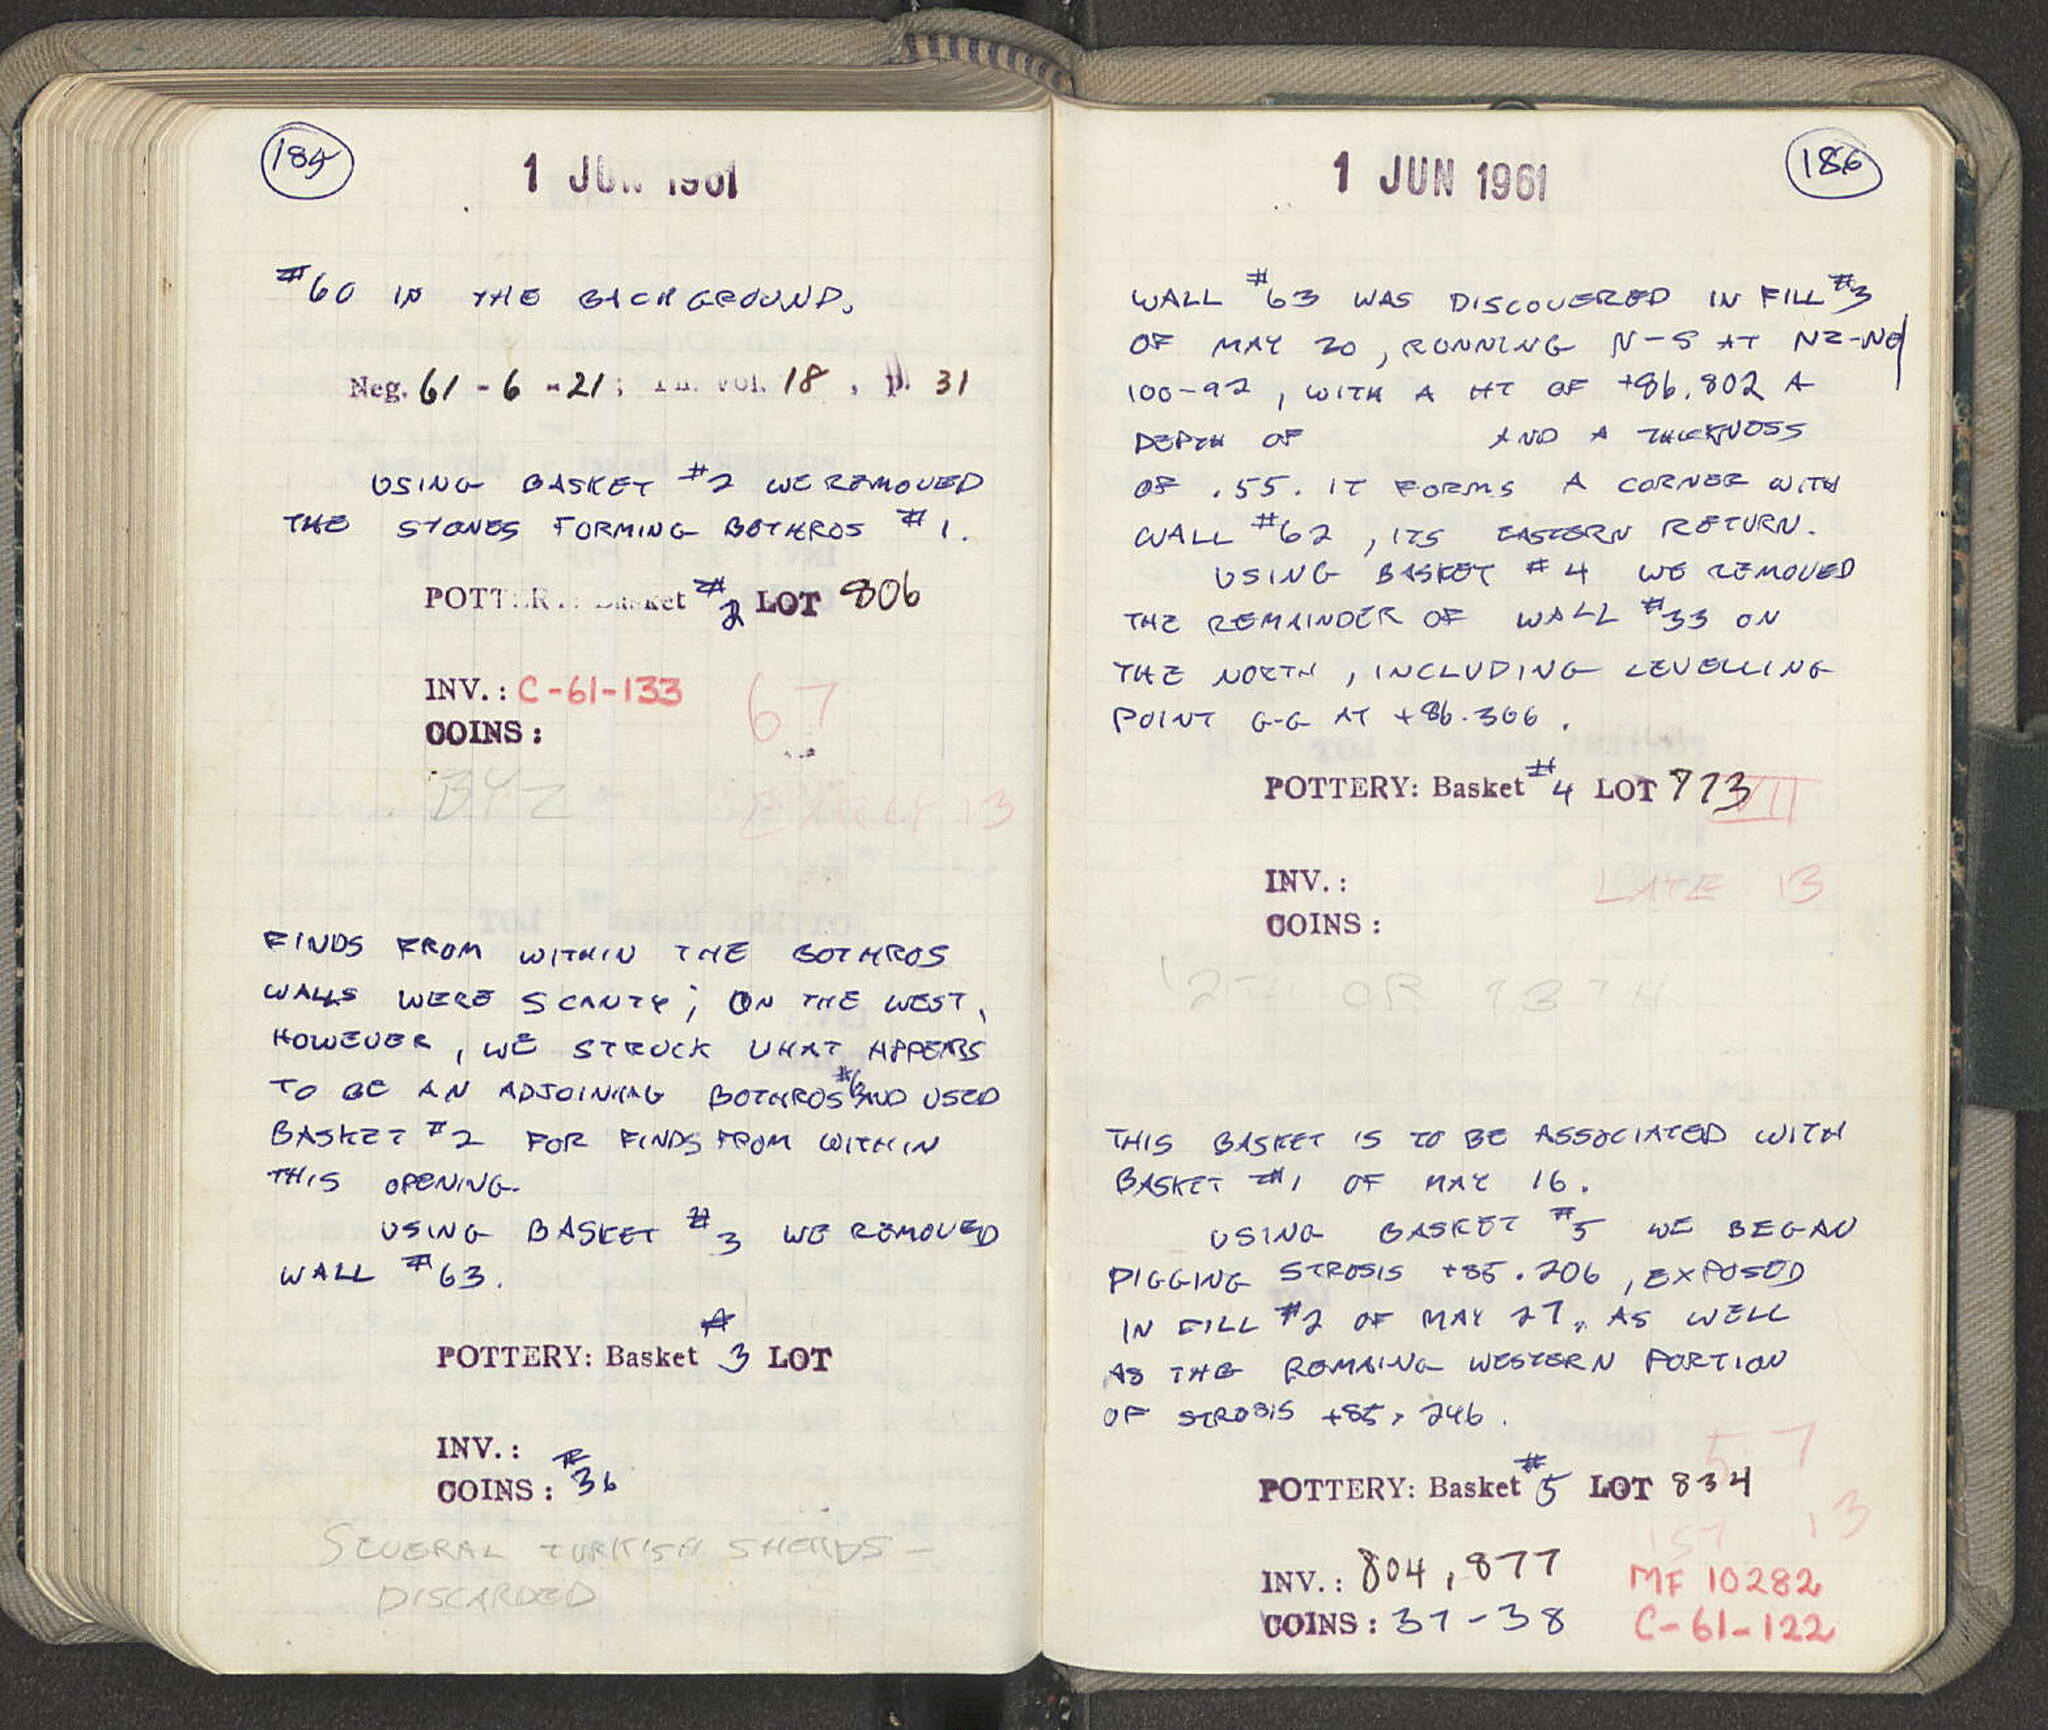 185
1 JUN 1961
#60 IN THE BACKGROUND.
Neg. 61-6-21; Ph. Vol. 18, p. 31
USING BASKET #2 WE REMOVED
THE STONES FORMING BOTHROS #1.
POTTERY: Basket #2 LOT 806
INV.: C-61-133 67
COINS:
BYZ EARLY 13
FINDS FROM WITHIN THE BOTHROS
WALLS WERE SCANTY; ON THE WEST,
HOWEVER, WE STRUCK WHAT APPEARS
TO BE AN ADJOINING BOTHROS #6 AND USED
BASKET #2 FOR FINDS FROM WITHIN
THIS OPENING.
USING BASKET #3 WE REMOVED
WALL #63.
POTTERY: Basket #3 LOT
INV.:
COINS: #36
SEVERAL TURKISH SHERDS -
DISCARDED
186
1 JUN 1961
WALL #63 WAS DISCOVERED IN FILL #3
OF MAY 20, RUNNING N-S AT NZ-
100-92, WITH A HT OF +86.802 A
DEPTH OF AND A THICKNESS
OF .55. IT FORMS A CORNER WITH
WALL #62, ITS EASTERN RETURN.
USING BASKET #4 WE REMOVED
THE REMAINDER OF WALL #33 ON
THE NORTH, INCLUDING LEVELLING
POINT G-G AT +86.306.
POTTERY: Basket #4 LOT 773 VII
INV.: LATE 13
COINS:
12TH OR 13TH
THIS BASKET IS TO BE ASSOCIATED WITH
BASKET #1 OF MAY 16.
USING BASKET #5 WE BEGAN
DIGGING STROSIS +85.206, EXPOSED
IN FILL #2 OF MAY 27, AS WELL
AS THE REMAING WESTERN PORTION
OF STROSIS +85.246.
57
POTTERY: Basket #5 LOT 834
1ST 13
INV.: 804, 877 MF 10282
COINS: 37-38 C-61-122